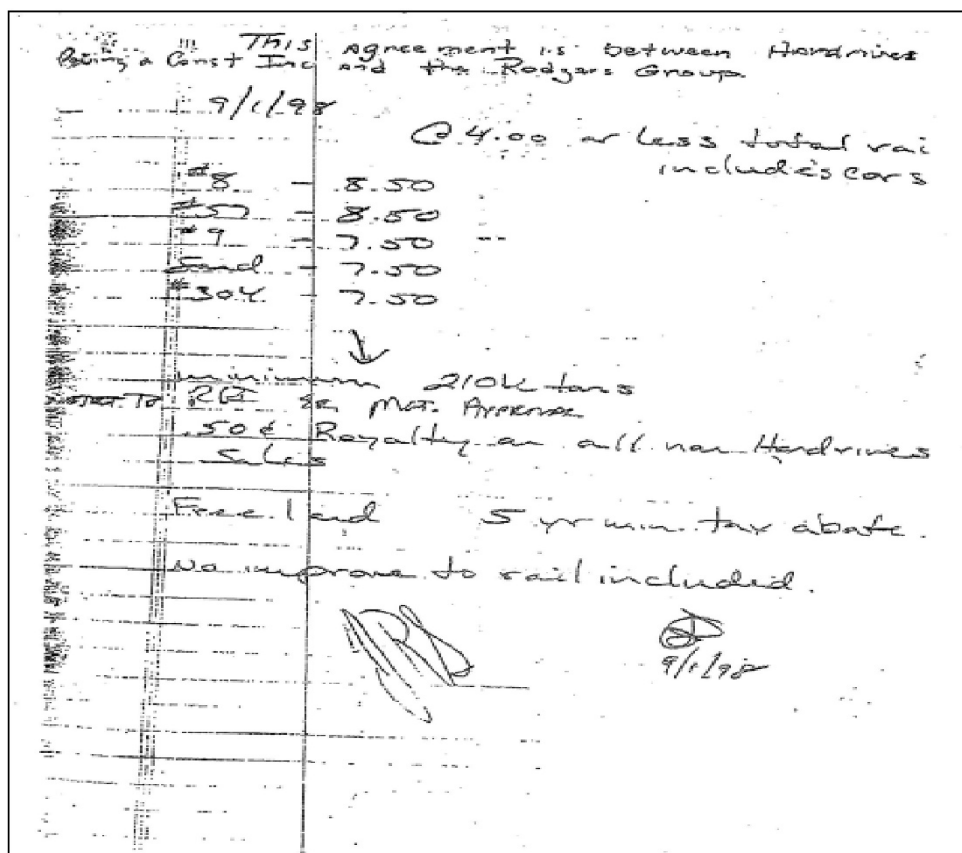 This agreement is between Hardrives
Paving & Const Inc and the Rodgers Group
9/1/98
@ 4.00 or less total rai
includes cars
#8 - 8.50
#57 - 8.50
#9 - 7.50
Sand - 7.50
#304 - 7.50
minimum 210k tons
To Mat.
.50¢ Royalty on all non Hardrives
Sales
Free land 5 yr min. tax abate.
No improve to rail included.
9/1/98